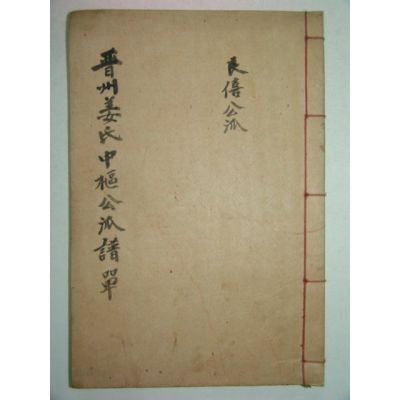 晋州姜氏中樞公派譜單
長僖公派